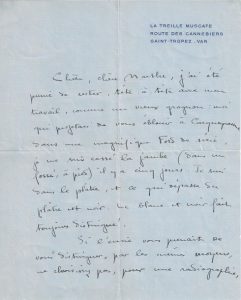 LA TREILLE MUSCATE
ROUTE DES CANNEBIERS
SAINT-TROPEZ . VAR
Chère, chère Marthe, j'ai été
punie de rester, tête à tête avec mon
travail, comme un vieux grognon : moi
qui projetais de vous enlever à
dans une magnifique Ford de
je me suis cassé la jambe (dans un
fossé, à pied) il y a cinq jours. Je suis
dans le plâtre, et ce qui dépasse du
plâtre est noir. Le blanc et noir fait
toujours distingué.
Si l'envie vous prenait de
vous distinguer, par les mêmes moyens,
ne choisissez pas, pour une radiographie,